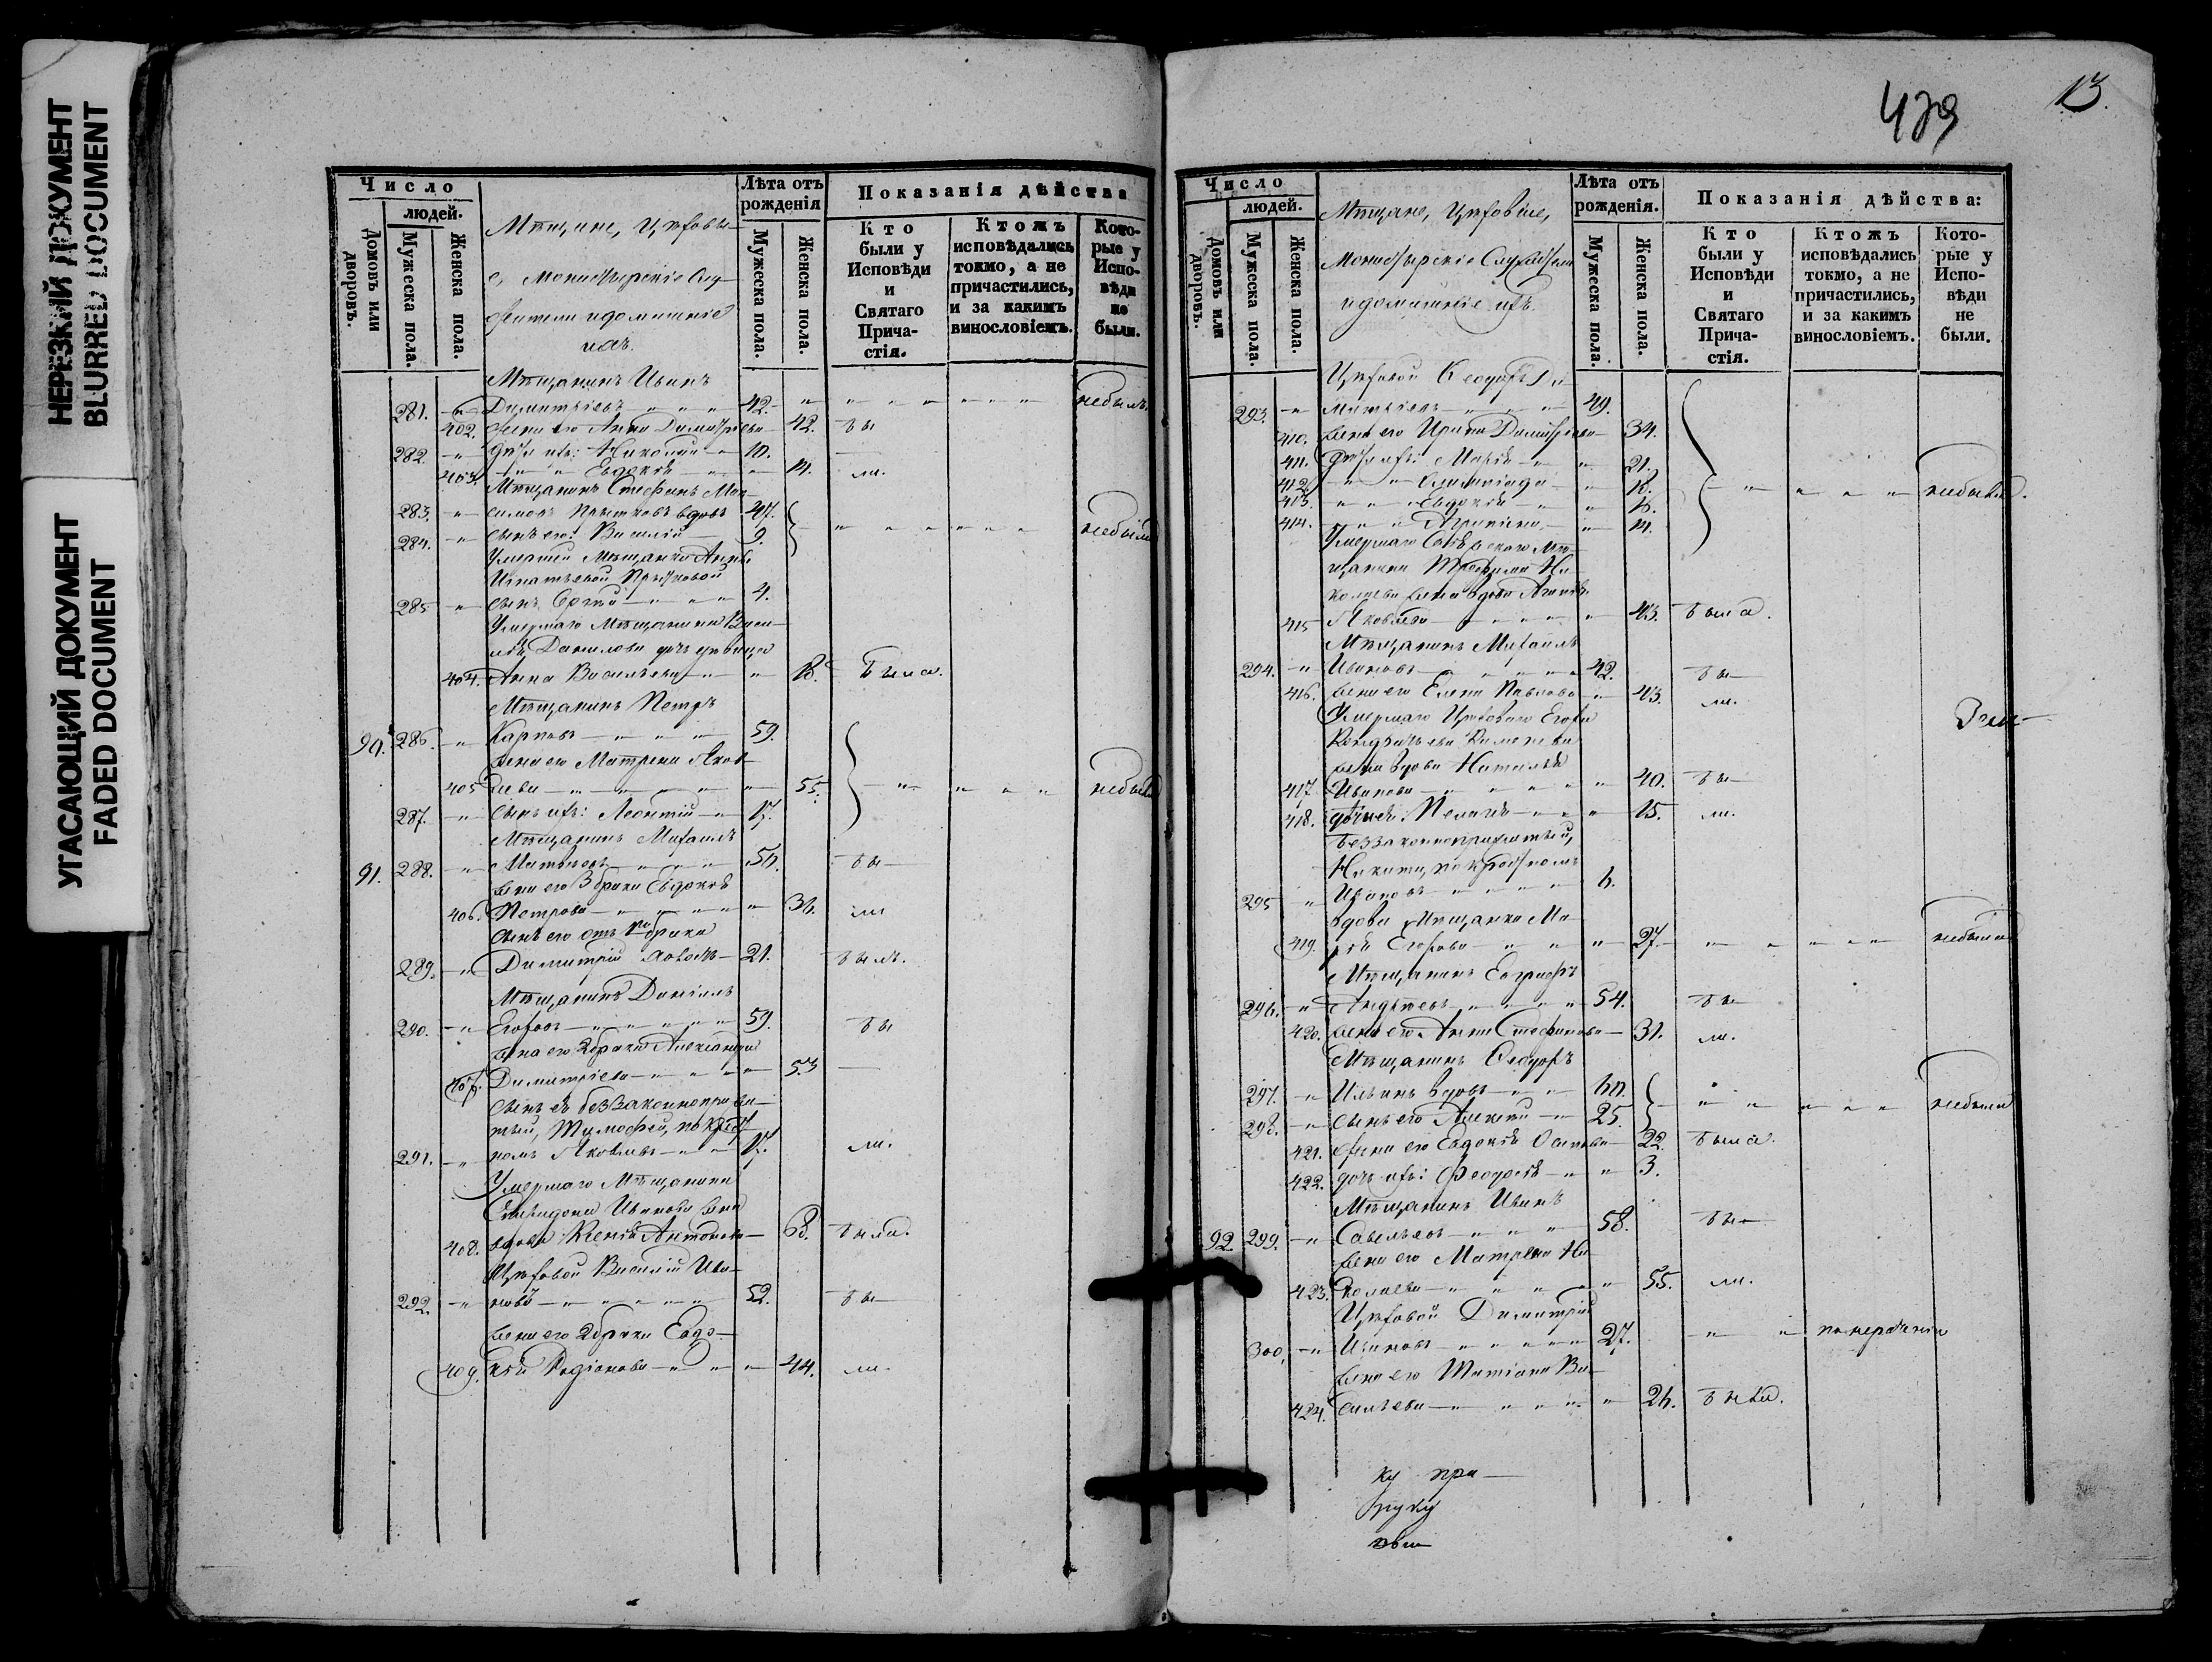 НЕРЕЗКИЙ ДОКУМЕНТ
BLURRED DOCUMENT
УГАСАЮЩИЙ ДОКУМЕНТ
FADED DOCUMENT
Число
людей.
Домовъ или дворовъ.
Мужеска пола.
Женска пола.
Мѣщане, Цѣховы-
е, Монастырскіе Слу-
жители и домашніе
ихъ.
Лѣта отъ рожденія
Мужеска пола.
Женска пола.
Показанія дѣйства
Кто были у Исповѣди и Святаго Причастія.
Ктожъ исповѣдались токмо, а не причастились, и за какимъ винословіемъ.
Которые у Исповѣди не были.
Мѣщанинъ Иванъ
281. Димитріевъ 42. небылъ
402. жена его Анна Димитріева 42. бы
282. дѣти ихъ: Николай 10.
403. Евдокія 14. ли.
Мѣщанинъ Стефанъ Мак-
283. симовъ вдовъ 47.
284. сынъ его: Василій 9. небыли
Умершей Мѣщанки Анны
Игнатьевой
285 сынъ Сергій 4.
Умершаго Мѣщанина Васи-
лія Данилова дочь дѣвица
404. Анна Васильева 18. была.
Мѣщанинъ Петръ
90. 286. Карповъ 59.
жена его Матрена Яков-
405 лева 55. небыли
287. сынъ ихъ: Леонтій 17.
Мѣщанинъ Михаилъ
91. 288. Матвѣевъ 56. бы
жена его 3 брака Евдокія
406. Петрова 36. ли
сынъ его отъ 1го брака
289. Димитрій 21. былъ.
Мѣщанинъ Даніилъ
290. Егоровъ 59. бы
жена его 2 брака Александра
407. Димитріева 53
сынъ ея беззаконноприжи-
тый, Тимофей, по крест-
291. номъ Яковлевъ 17. ли.
Умершаго Мѣщанина
Спиридона Иванова жена
408. вдова Ксенія Антонова 68. была.
Цѣховой Василій Ива-
292. новъ 52. бы
жена его 2 брака Евдо-
409. кія Родіонова 44. ли
479
13.
Число
людей.
Домовъ или дворовъ.
Мужеска пола.
Женска пола.
Мѣщане, Цѣховые,
Монастырскіе Служители
и домашніе ихъ.
Лѣта отъ рожденія.
Мужеска пола.
Женска пола.
Показанія дѣйства:
Кто были у Исповѣди и Святаго Причастія.
Ктожъ исповѣдались токмо, а не причастились, и за какимъ винословіемъ.
Которые у Исповѣди не были.
Цѣховой Ѳеодоръ
293. 49.
410. жена его Ирина Димитріева 34.
411. дѣти ихъ: Марія 21.
412. Олимпіада 18. небыли.
413. Евдокія 16.
414. Агрипина 14.
Умершаго Мѣ-
щанина Трофима Ни-
колаева жена вдова
415 Яковлева 43. была.
Мѣщанинъ Михаилъ
294. Ивановъ 42. бы
416. жена его Елена Павлова 43. ли.
Умершаго Цѣховаго Егора
жена вдова Наталья
417. Иванова 40. бы
418. дочь ея: Пелагія 15. ли.
беззаконноприжитый,
Никита, по крестномъ
295 Ивановъ 6.
вдова Мѣщанка Ма-
419. рія Егорова 27. небыла
Мѣщанинъ Евграфъ
296. Андреевъ 54. бы
420. жена его Анна Стефанова 31. ли.
Мѣщанинъ Ѳеодоръ
297. Ильинъ вдовъ 60.
298. сынъ его Алексѣй 25. небыли
421. жена его Евдокія Осипова 22. была.
422. дочь ихъ: Феодосія 3.
Мѣщанинъ Иванъ
92 299. Савельевъ 58. бы
жена его Матрена Ни-
423. колаева 55. ли.
Цѣховой Димитрій
300. Ивановъ 27. по нераченію
жена его Татіана Ва-
424. сильева 26. была.
ку при-
руку